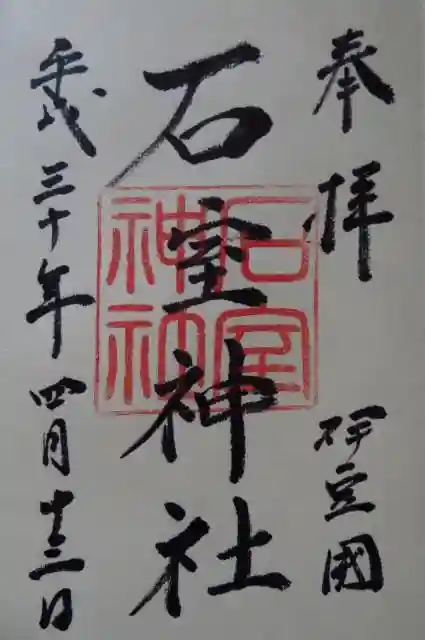 奉拝 伊豆國
石室神社
石室神社
平成三十年四月十三日